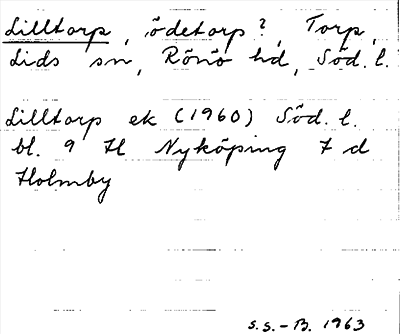 Lilltorp, ödetorp?, Torp,
Lids sn, Rönö hd, Söd. l.
Lilltorp ek (1960) Söd. l.
bl. 9 H Nyköping 7 d
Holmby
S.S.-B. 1963